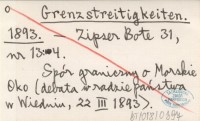 o
Grenzstreitigkeiten.
1893. – Zipser Bote 31,
nr 13:4.
Spór graniczny o Morskie
Oko (debata w radzie państwa
w Wiedniu, 22 III 1893).